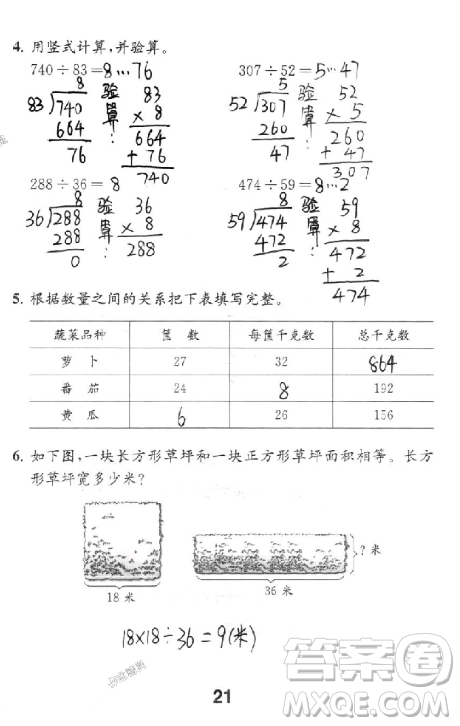 4. 用竖式计算,并验算。
740÷83=8…76 307÷52=5…47
8 验算: 83 5 验算: 52
83 740 × 8 52 307 × 5
664 664 260 260
76 + 76 47 + 47
740 307
288÷36=8 474÷59=8…2
8 验算: 36 8 验算: 59
36 288 × 8 59 474 × 8
288 288 472 472
0 2 + 2
474
5. 根据数量之间的关系把下表填写完整。
蔬菜品种 筐 数 每筐千克数 总千克数
萝 卜 27 32 864
番 茄 24 8 192
黄 瓜 6 26 156
6. 如下图,一块长方形草坪和一块正方形草坪面积相等。长方
形草坪宽多少米?
? 米
18 米 36 米
18×18÷36=9(米)
21
答案圈
MXQE.COM